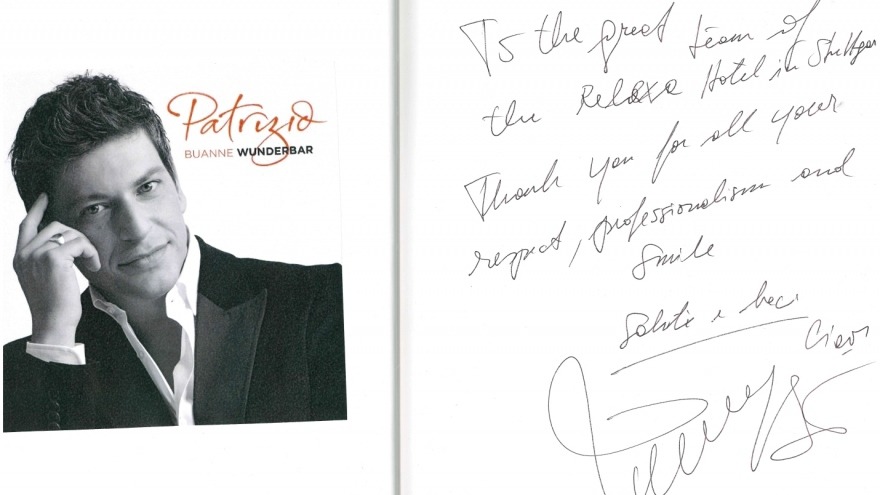 Patrizio
BUANNE WUNDERBAR
To the great team of
the Relaxa Hotel in Stuttgar
Thank you for all your
respect, professionalism and
Smile
Saluti e baci
Ciao